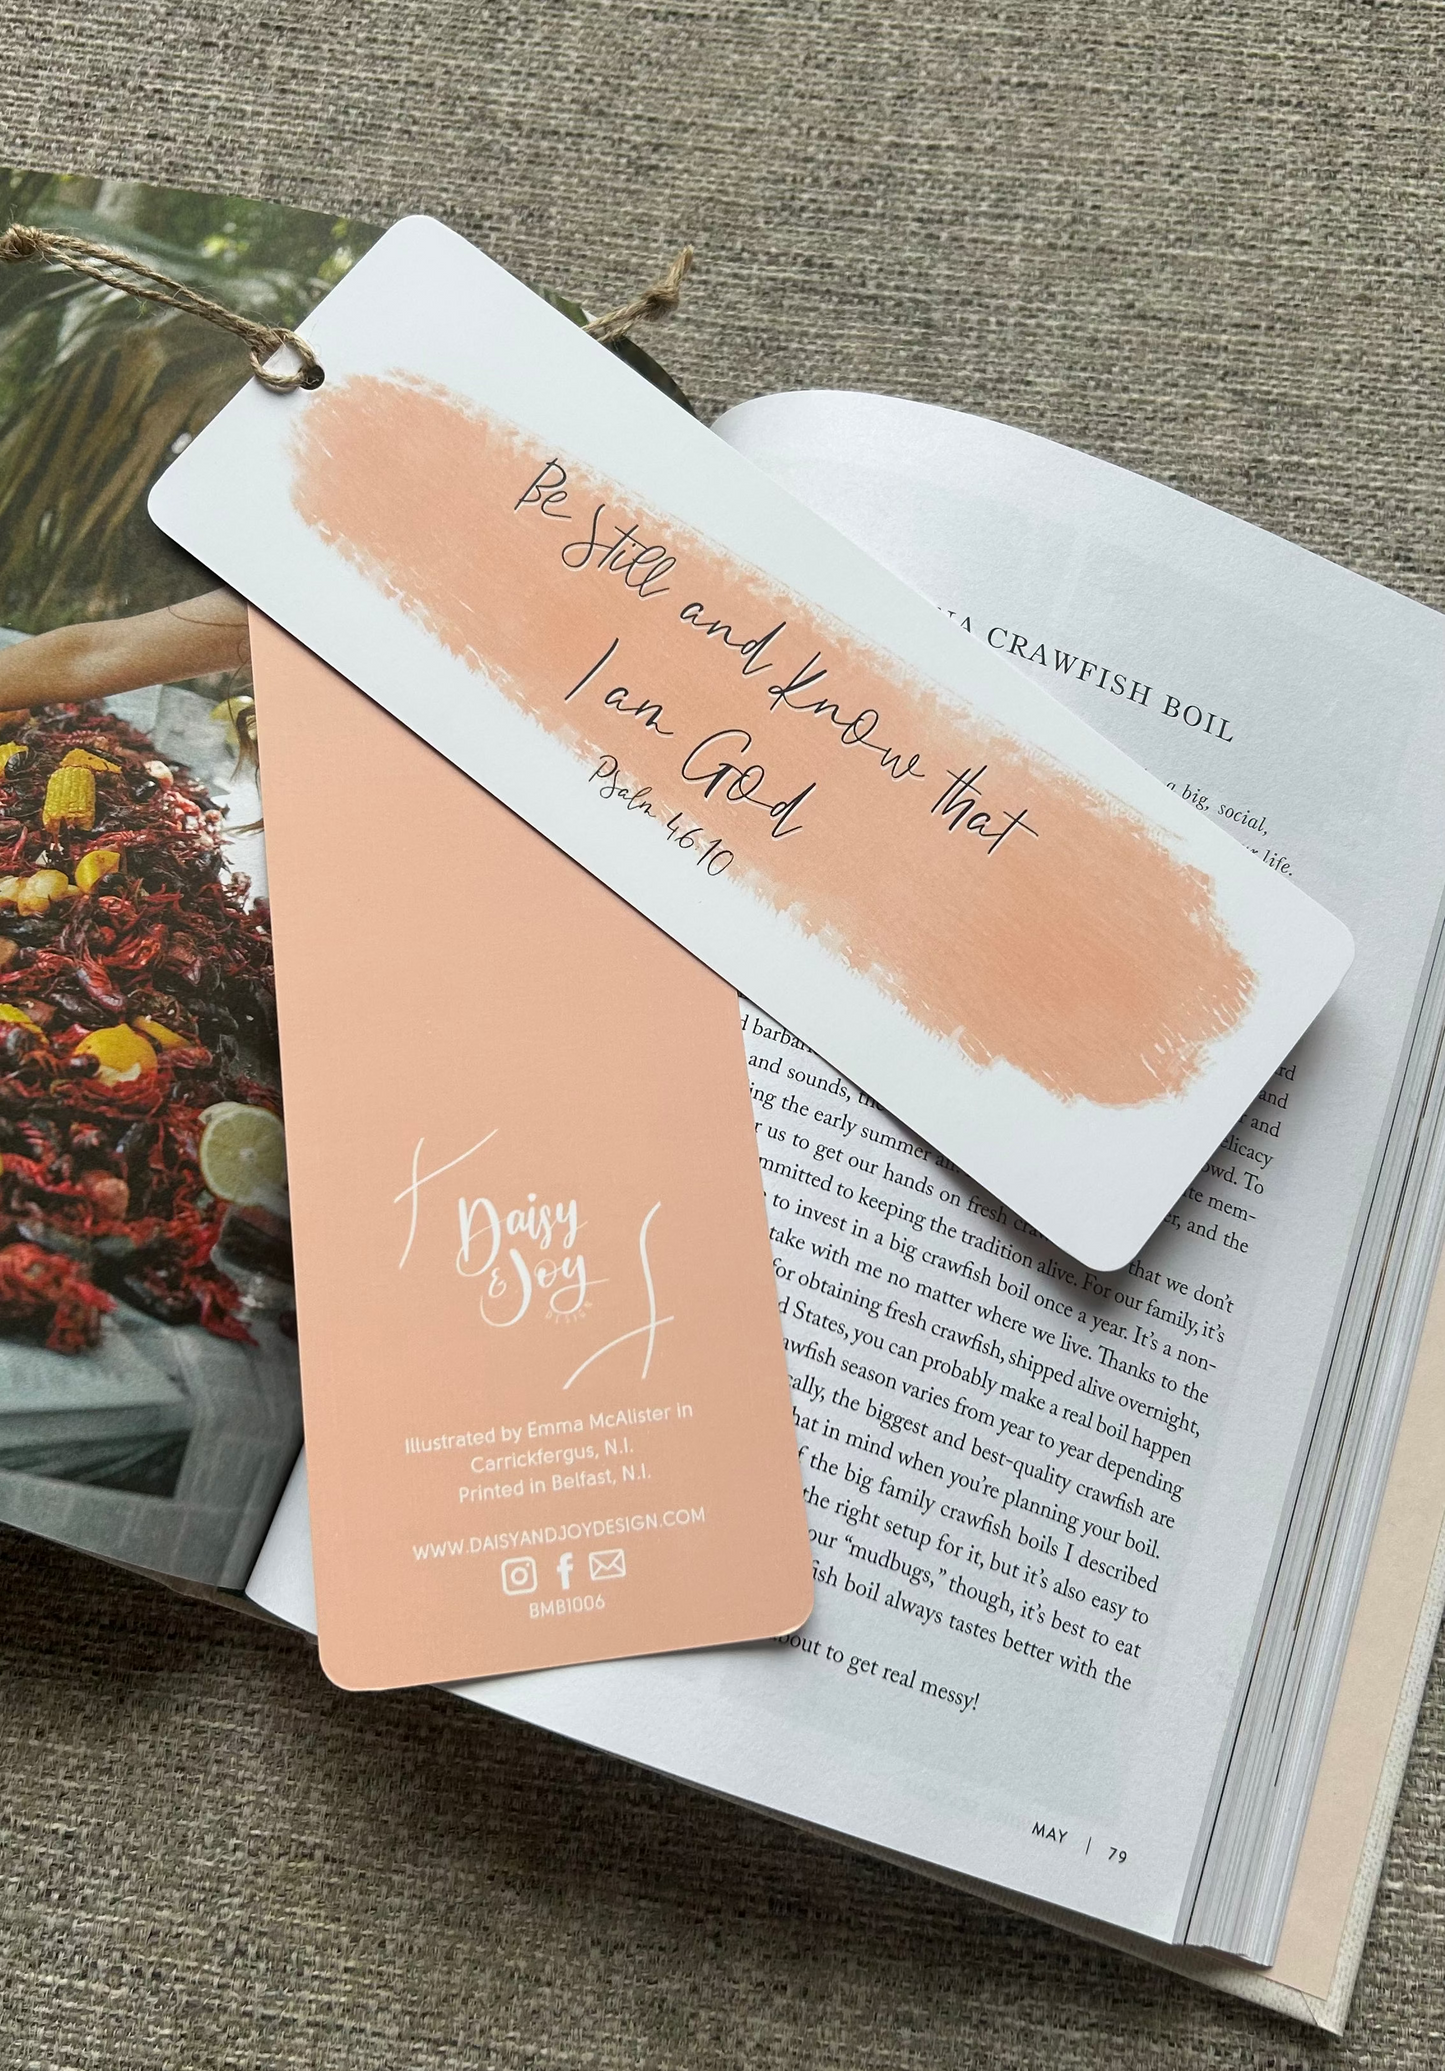 Be Still and Know that
I am God
Psalm 46 10
Daisy
& Joy
DESIGN
Illustrated by Emma McAlister in
Carrickfergus, N.I.
Printed in Belfast, N.I.
WWW.DAISYANDJOYDESIGN.COM
BMB1006
CRAWFISH BOIL
a big, social,
life.
barbar
and sounds, the
and
the early summer
and
us to get our hands on fresh
crowd. To
to keeping the tradition alive. For our family, it's
to invest in a big crawfish boil once a year. It's a non-
take with me no matter where we live. Thanks to the
for obtaining fresh crawfish, shipped alive overnight,
States, you can probably make a real boil happen
season varies from year to year depending
the biggest and best-quality crawfish are
in mind when you're planning your boil.
the big family crawfish boils I described
the right setup for it, but it's also easy to
our “mudbugs,” though, it's best to eat
boil always tastes better with the
about to get real messy!
MAY | 79